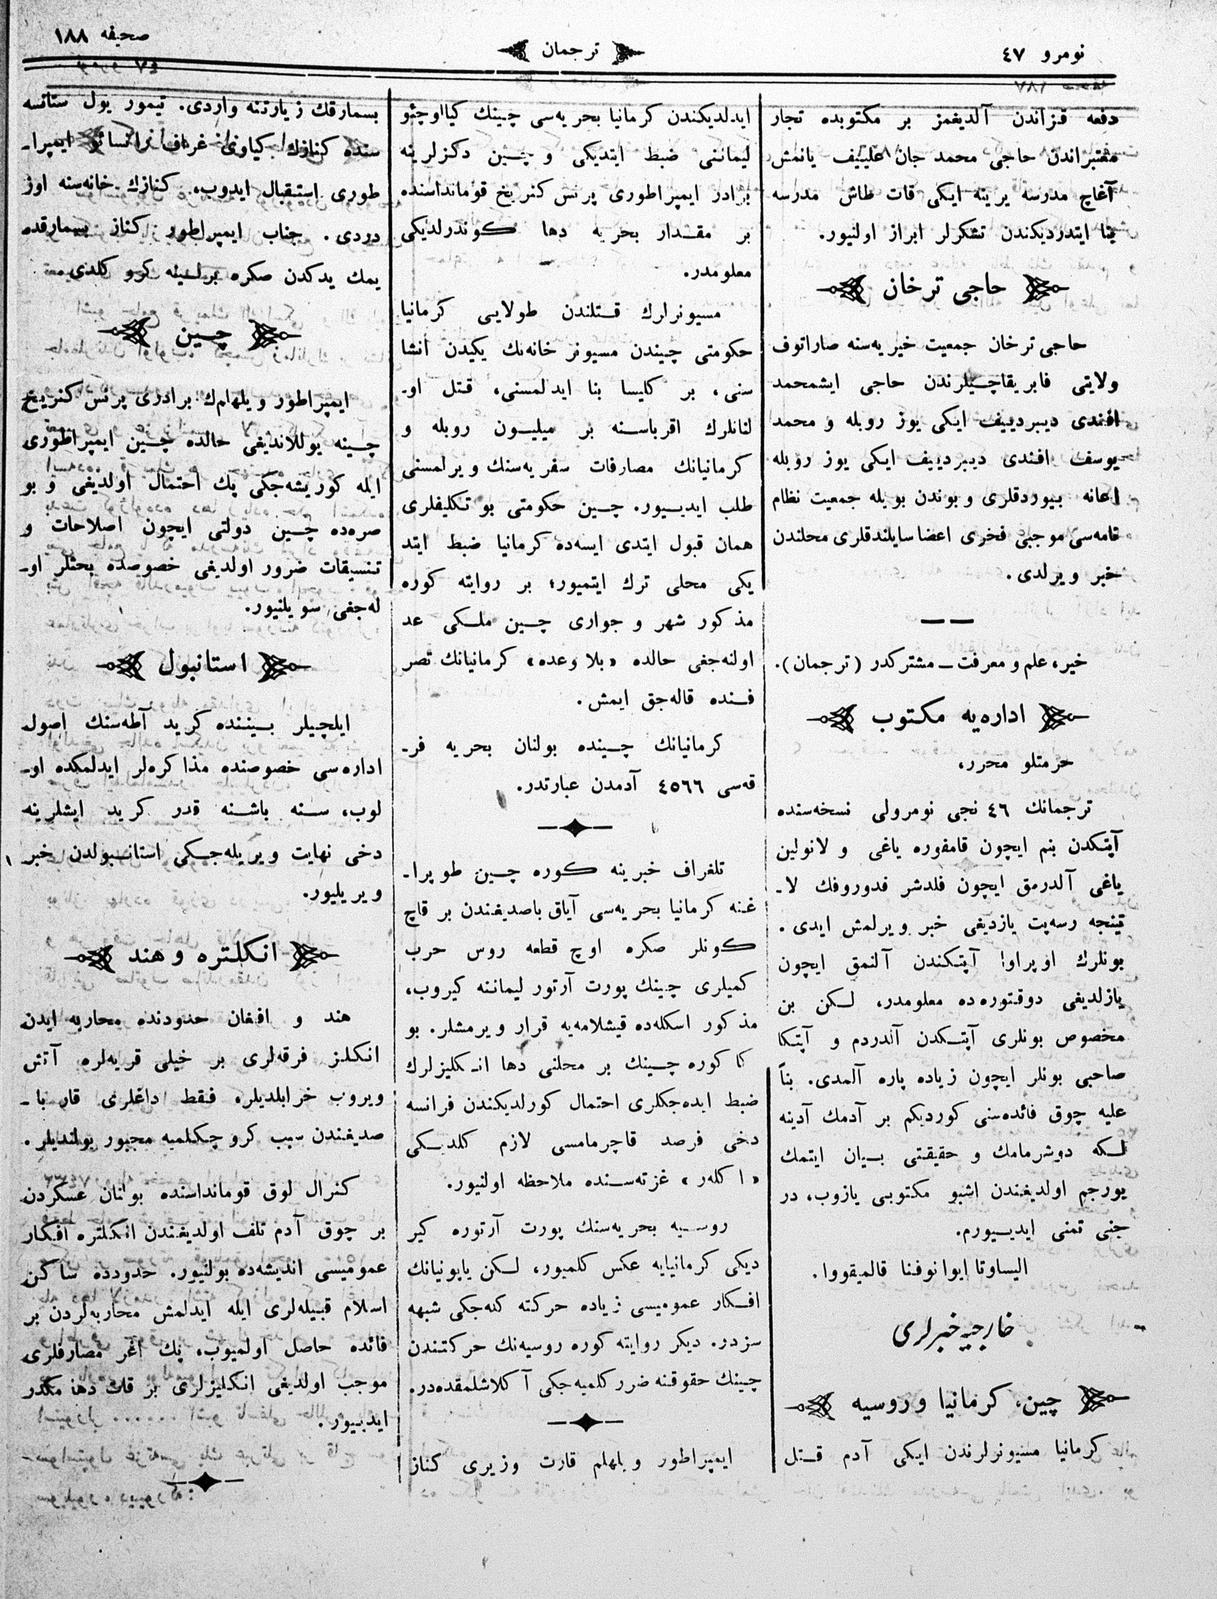 نومرو ٤٧
ترجمان
صحيفه ١٨٨
دفعه قزاندن آلديغمز بر مكتوبده تجار
معتبراندن حاجی محمد جان علييف يانمش
آغاچ مدرسه يرينه ايكی قات طاش مدرسه
بنا ايتدرديكندن تشكرلر ابراز اولنيور.
حاجی ترخان
حاجی ترخان جمعيت خيريه‌سنه صاراتوف
ولايتی فابريقاچيلرندن حاجی ايشمحمد
افندی ديبرديیف ايكی يوز روبله و محمد
يوسف افندی ديبرديیف ايكی يوز روبله
اعانه بيوردقلری و بوندن بويله جمعيت نظام
نامه‌سی موجبی فخری اعضا سايلندقلری محلندن
خبر ويرلدی.
خير، علم و معرفت ــ مشتركدر (ترجمان).
اداره‌يه مكتوب
حرمتلو محرر،
ترجمانك ٤٦ نجی نومرولی نسخه‌سنده
آپتكدن بنم ايچون قامفوره ياغی و لانولين
ياغی آلدرمق ايچون فلدشر فدوروفك لا-
تينجه رسه‌پت يازديغی خبر ويرلمش ايدی.
بونلرك اوپراوا آپتكندن آلنمق ايچون
يازلديغی دوقتوره‌ده معلومدر، لكن بن
مخصوص بونلری آپتكدن آلدردم و آپتكا
صاحبی بونلر ايچون زياده پاره آلمدی. بنأ
عليه چوق فائده‌سنی كورديكم بر آدمك آدينه
لكه دوشرمامك و حقيقتی بيان ايتمك
بورجم اولديغندن اشبو مكتوبی يازوب، در
جنی تمنی ايديورم.
اليساوتا ايوانوفنا قالميقووا.
خارجيه خبرلری
چين، كرمانيا و روسيه
كرمانيا مسيونرلرندن ايكی آدم قتل
ايدلديكندن كرمانيا بحريه‌سی چينك كيااوچئو
ليماننی ضبط ايتديكی و چين دكزلرينه
برادر ايمپراطوری پرنس كنريخ قومانداسنده
بر مقدار بحريه دها كوندرلديكی
معلومدر.
مسيونرلرك قتلندن طولايی كرمانيا
حكومتی چيندن مسيونر خانه‌نك يكيدن انشا
سنی، بر كليسا بنا ايدلمسنی، قتل او-
لنانلرك اقرباسنه بر ميليون روبله و
كرمانيانك مصارفات سفريه‌سنك ويرلمسنی
طلب ايديور. چين حكومتی بو تكليفلری
همان قبول ايتدی ايسه‌ده كرمانيا ضبط ايتد
يكی محلی ترك ايتميور؛ بر روايته كوره
مذكور شهر و جواری چين ملكی عد
اولنه‌جغی حالده «بلا وعده» كرمانيانك تصر
فنده قاله‌جق ايمش.
كرمانيانك چينده بولنان بحريه فر-
قه‌سی ٤٥٦٦ آدمدن عبارتدر.
تلغراف خبرينه كوره چين طوپرا-
غنه كرمانيا بحريه‌سی آياق باصديغندن بر قاچ
كونلر صكره اوچ قطعه روس حرب
كميلری چينك پورت آرتور ليماننه كيروب،
مذكور اسكله‌ده قيشلامه‌يه قرار ويرمشلر. بو
كا كوره چينك بر محلنی دها انكليزلرك
ضبط ايده‌جكلری احتمال كورلديكندن فرانسه
دخی فرصد قاچرمامسی لازم كلديكی
«اكلەر» غزته‌سنده ملاحظه اولنيور.
روسيه بحريه‌سنك پورت آرتوره كير
ديكی كرمانيايه عكس كلميور، لكن ياپونيانك
افكار عموميسی زياده حركته كله‌جكی شبهه
سزدر. ديكر روايته كوره روسيه‌نك حركتندن
چينك حقوقنه ضرر كلميه‌جكی آكلاشلمقده‌در.
ايمپراطور ويلهلم قارت وزيری كناز
بسمارقك زيارتنه واردی. تيمور يول ستانسه
سنده كنازك كياوی غراف رانسائو ايمپرا-
طوری استقبال ايدوب، كنازك خانه‌سنه اوز
دردی. جناب ايمپراطور كناز بسمارقده
يمك يدكدن صكره برلينه كرو كلدی
چين
ايمپراطور ويلهامك برادری پرنس كنريخ
چينه يوللانديغی حالده چين ايمپراطوری
ايله كوريشه‌جكی پك احتمال اولديغی و بو
صره‌ده چين دولتی ايچون اصلاحات و
تنسيقات ضرور اولديغی خصوصده بحثلر او-
له‌جغی سويلنيور.
استانبول
ايلچيلر بيننده كريد آطه‌سنك اصول
اداره‌سی خصوصنده مذاكره‌لر ايدلمكده او-
لوب، سنه باشنه قدر كريد ايشلرينه
دخی نهايت ويريله‌جكی استانبولدن خبر
ويريليور.
انكلتره و هند
هند و افغان حدودنده محاربه ايدن
انكلز فرقه‌لری بر خيلی قريه‌لره آتش
ويروب خرابلديلر. فقط داغلری قار با-
صديغندن سبب كرو چكلميه مجبور بولنديلر.
كنرال لوق قومانداسنده بولنان عسكردن
بر چوق آدم تلف اولديغندن انكلتره افكار
عموميسی انديشه‌ده بولنيور. حدودده ساكن
اسلام قبيله‌لری ايله ايدلمش محاربه‌لردن بر
فائده حاصل اولميوب، پك آغر مصارفلری
موجب اولديغی انكليزلری بر قات دها مكدر
ايديور.